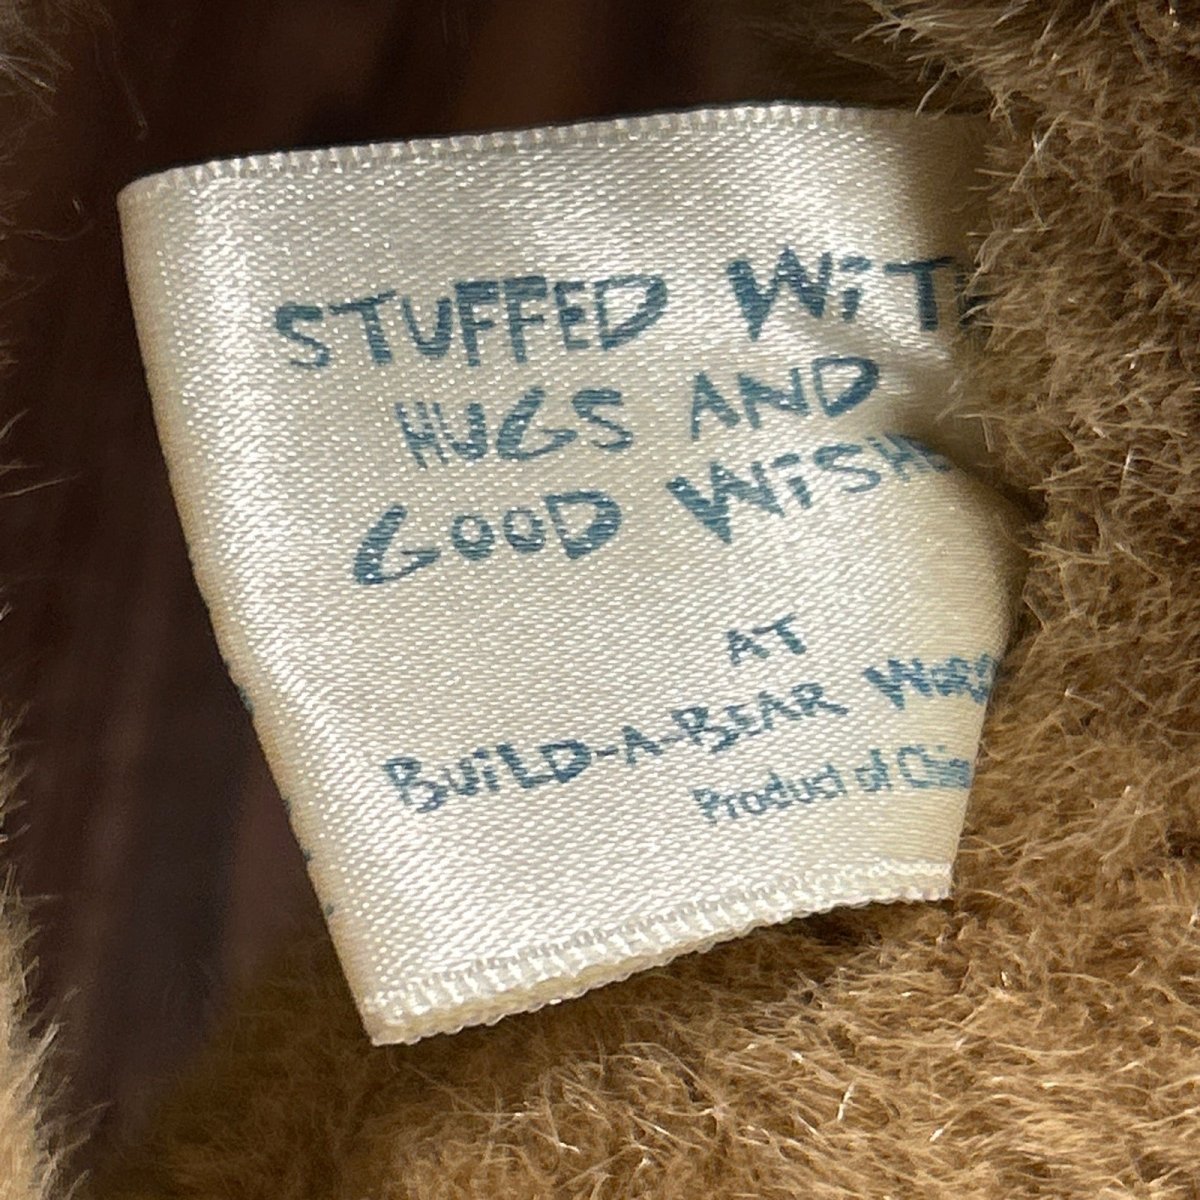 STUFFED WiTH
HUGS AND
GOOD WiSHE
AT
BUiLD-A-BEAR WORK
Product of China